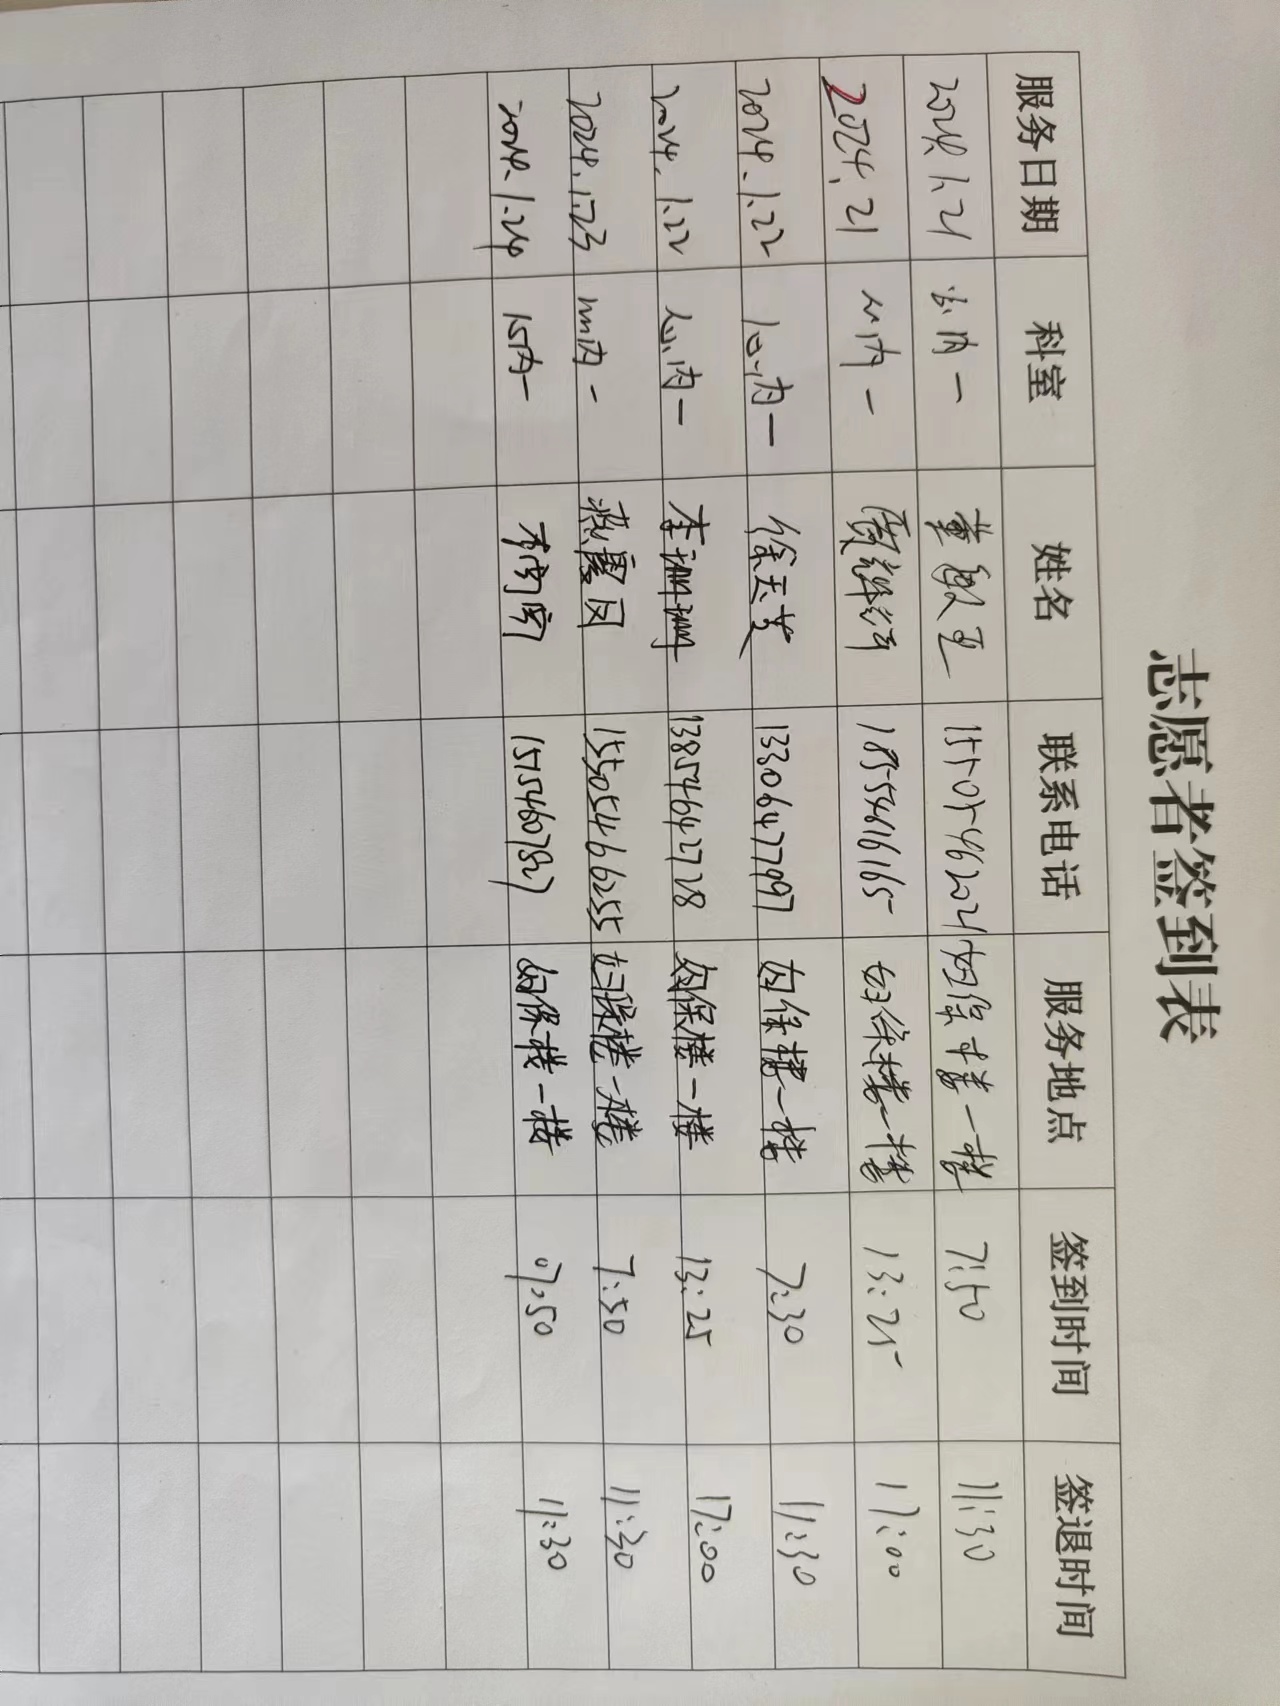 志愿者签到表
服务日期 科室 姓名 联系电话 服务地点 签到时间 签退时间
2024.1.21 内一 董敏 15505462021 妇保楼一楼 7:50 11:30
2024.21 内一 18554616165 妇保楼一楼 13:25 17:00
2024.1.22 心内一 徐玉芝 13306477997 妇保楼一楼 7:30 11:30
2024.1.22 心内一 李珊珊 13854642728 妇保楼一楼 13:25 17:00
2024.1.23 内一 霞凤 15505466255 妇保楼一楼 7:50 11:30
2024.1.24 内一 15154607827 妇保楼一楼 07:50 11:30